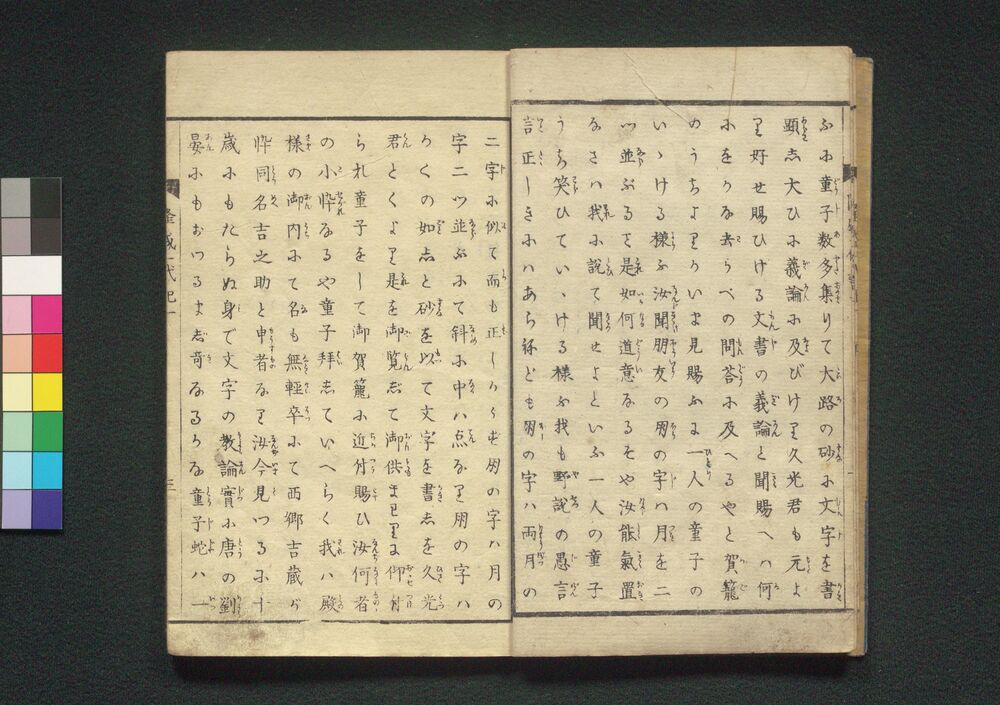 ふに童子数多集りて大路の砂に文字を書
顕し大ひに義論に及びけり久光君も元よ
り好せ賜ひける文書の義論と聞賜へハ何
にをかなま去らべの問答に及へるやと賀籠
のうちよりいま見賜ふに一人の童子の
いゝける様ふ汝聞朋友の朋の字ハ月を二
ツ並ぶると是如何道意なるそや汝能氣置
なさハ我に説て聞せよといふ一人の童子
うち笑ひていゝける様ふ我も野説の愚言
言正しきにハあら祢ども朋の字ハ両月の
二字に似て而も正しからず朋の字ハ月の
字二ツ並ぶにて斜に中ハ点なり朋の字ハ
かくの如しと砂を以て文字を書しを久光
君とくより是を御覧じて御供まわりに仰付
られ童子をして御賀籠に近付賜ひ汝何者
の小忰なるや童子拜していへらく我ハ殿
様の御内にて名も無輕卒にて西郷吉蔵が
忰同名吉之助と申者なり汝今見つるに十
歳にもたらぬ身で文字の教論實に唐の劉
晏にもおつるまじ奇なるかな童子蛇ハ一
隆盛一代記一
三